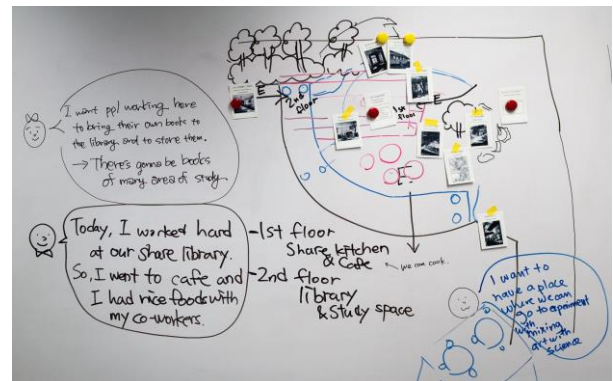 I want ppl working here
to bring their own books to
the library and to store them.
→ There's gonna be books
of many area of study.
Today, I worked hard
at our share library.
So, I went to cafe and
I had nice foods with
my co-workers.
-1st floor
Share kitchen
& Cafe
← We can cook.
-2nd floor
library
& Study space
2nd
floor
1st
floor
E
E
I want to
have a place
where we can
go to experiment
with
mixing
art with
science